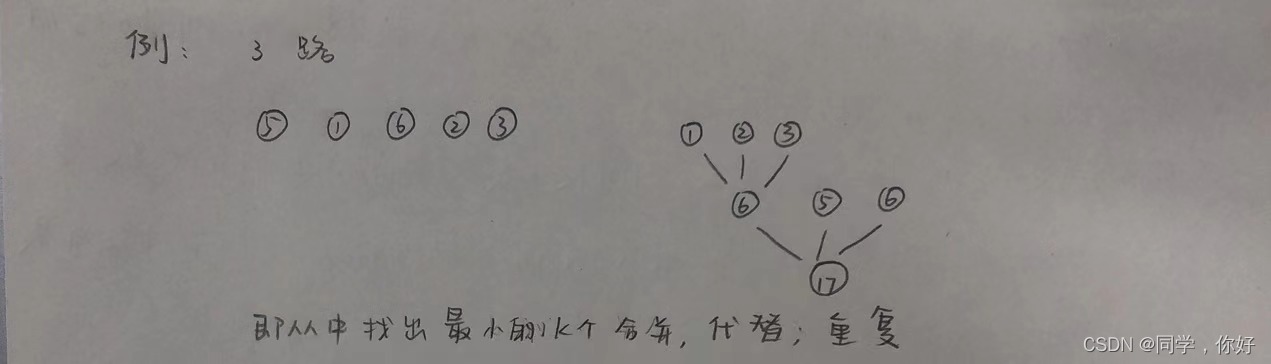 例: 3 路
⑤ ① ⑥ ② ③
① ② ③
⑥ ⑤ ⑥
⑰
即从中找出最小的k个合并,代替;重复
CSDN @同学，你好